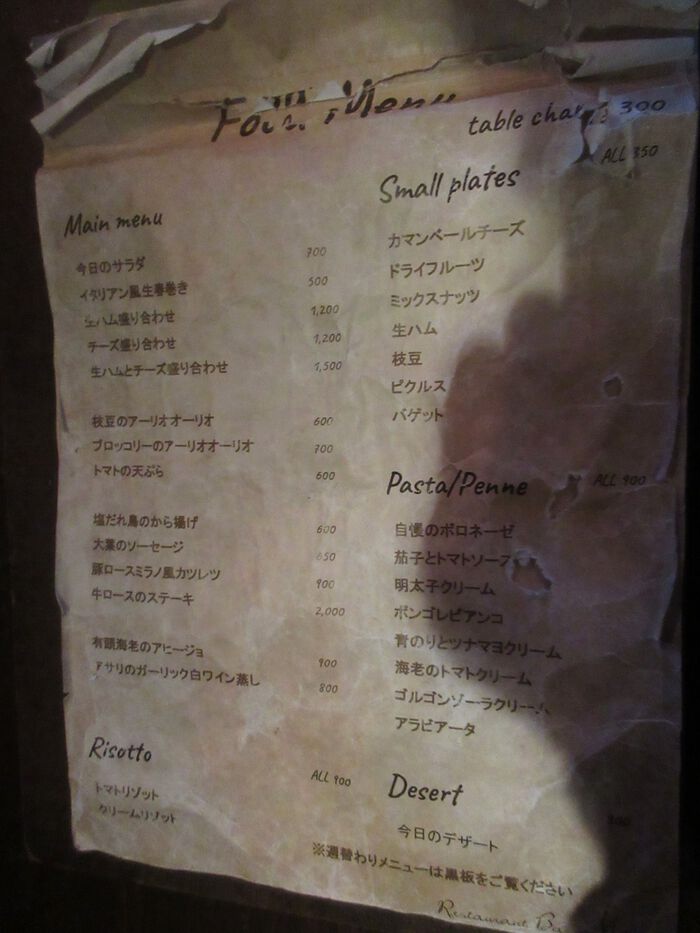 Food Menu
table charge 300
Main menu
今日のサラダ 700
イタリアン風生春巻き 500
生ハム盛り合わせ 1,200
チーズ盛り合わせ 1,200
生ハムとチーズ盛り合わせ 1,500
枝豆のアーリオオーリオ 600
ブロッコリーのアーリオオーリオ 700
トマトの天ぷら 600
塩だれ鳥のから揚げ 600
大葉のソーセージ 650
豚ロースミラノ風カツレツ 900
牛ロースのステーキ 2,000
有頭海老のアヒージョ 900
アサリのガーリック白ワイン蒸し 800
Risotto ALL 900
トマトリゾット
クリームリゾット
Small plates ALL 350
カマンベールチーズ
ドライフルーツ
ミックスナッツ
生ハム
枝豆
ピクルス
バゲット
Pasta/Penne ALL 900
自慢のボロネーゼ
茄子とトマトソース
明太子クリーム
ボンゴレビアンコ
青のりとツナマヨクリーム
海老のトマトクリーム
ゴルゴンゾーラクリーム
アラビアータ
Desert
今日のデザート
※週替わりメニューは黒板をご覧ください
Restaurant